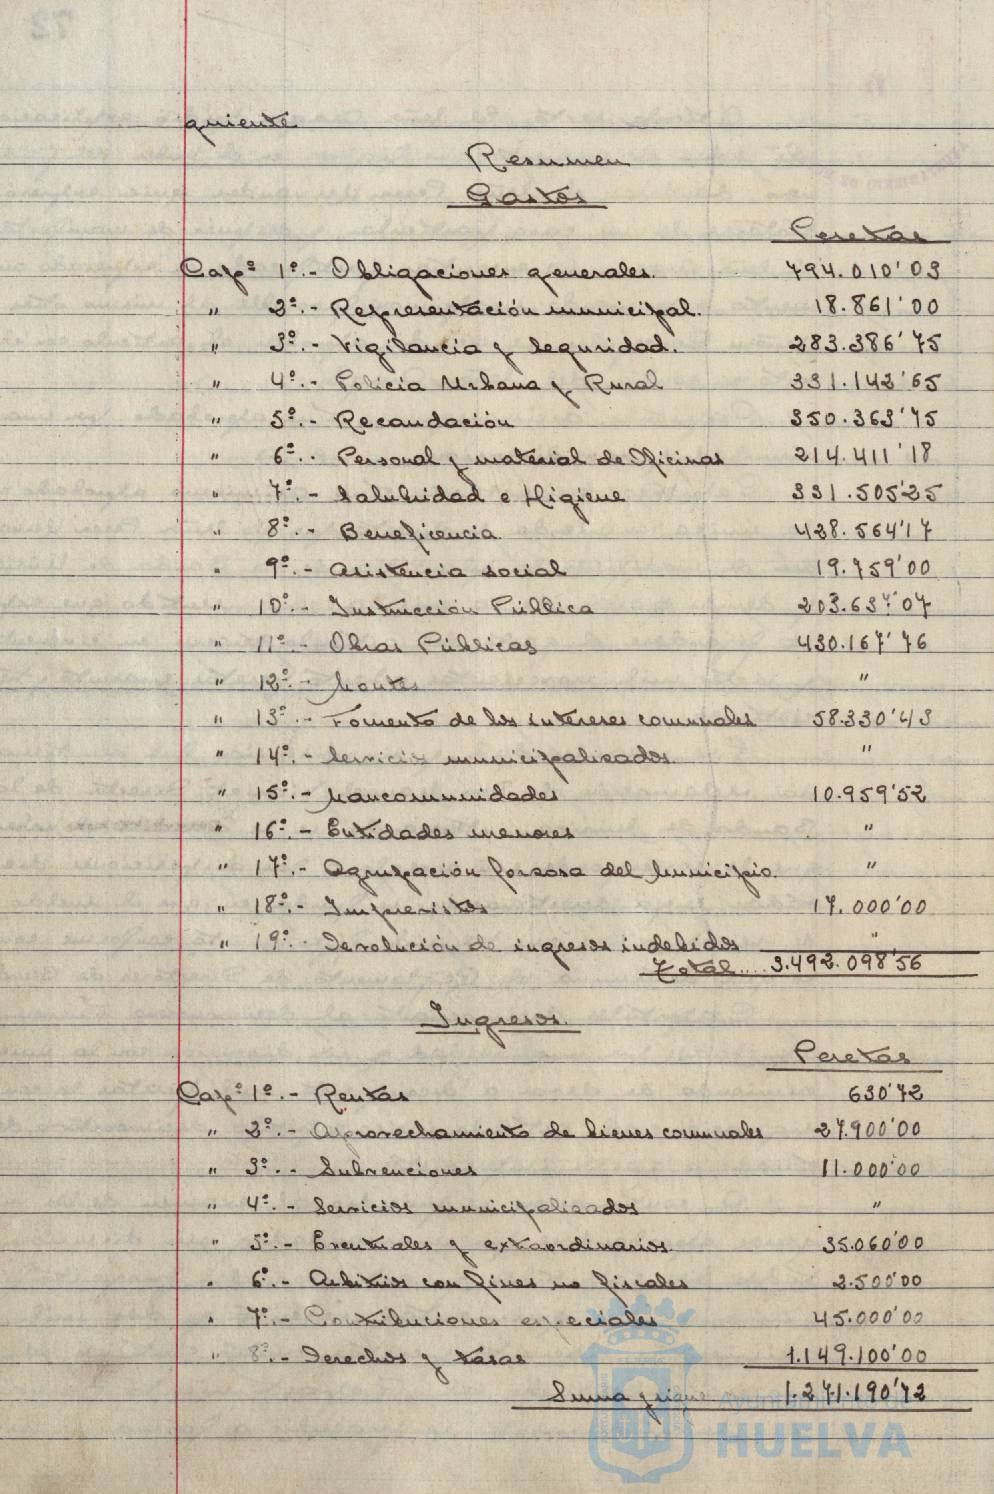 quiente
Resumen
Gastos
Pesetas
Capº 1º.- Obligaciones generales. 794.010'03
" 2º.- Representación municipal. 18.861'00
" 3º.- Vigilancia y Seguridad. 283.386'75
" 4º.- Policia Urbana y Rural 331.142'65
" 5º.- Recaudación 350.363'75
" 6º.- Personal y material de Oficinas 214.411'18
" 7º.- Salubridad e Higiene 331.505'25
" 8º.- Beneficencia. 428.564'17
" 9º.- Asistencia social 19.759'00
" 10º.- Instrucción Pública 203.637'07
" 11º.- Obras Públicas 430.167'76
" 12º.- Montes "
" 13º.- Fomento de los intereses comunales 58.330'43
" 14º.- Servicios municipalizados. "
" 15º.- Mancomunidades 10.959'52
" 16º.- Entidades menores "
" 17º.- Agrupación forzosa del Municipio. "
" 18º.- Imprevistos 17.000'00
" 19º.- Devolución de ingresos indebidos "
Total.... 3.492.098'56
Ingresos.
Pesetas
Capº 1º.- Rentas 630'72
" 2º.- Aprovechamiento de bienes comunales 27.900'00
" 3º.- Subvenciones 11.000'00
" 4º.- Servicios municipalizados "
" 5º.- Eventuales y extraordinarios. 35.060'00
" 6º.- Arbitrios con fines no fiscales 2.500'00
" 7º.- Contribuciones especiales 45.000'00
" 8º.- Derechos y tasas 1.149.100'00
Suma y sigue 1.271.190'72
Ayuntamiento de
HUELVA